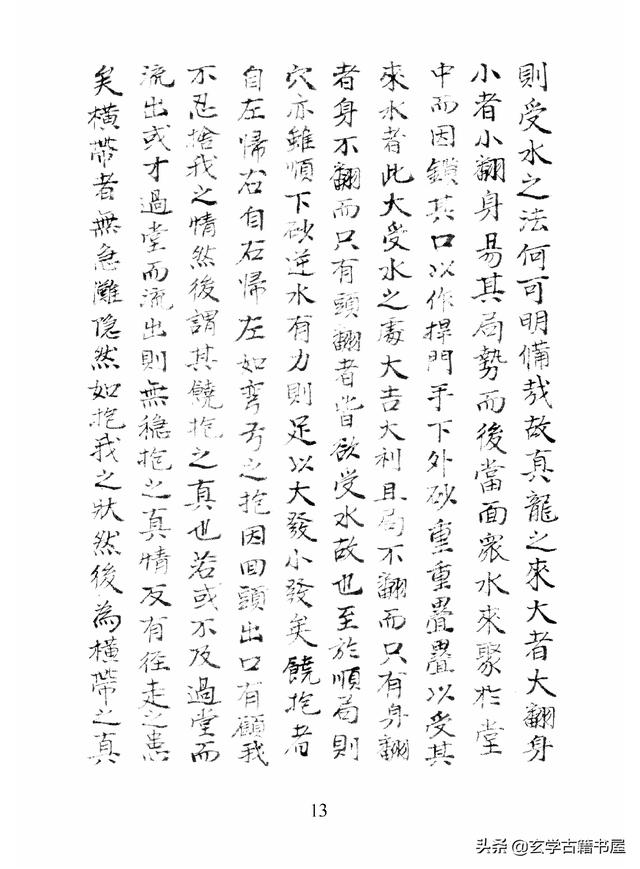 則受水之法何可明備哉故真龍之來大者大翻身
小者小翻身易其局勢而後當面衆水來聚於堂
中而因鎖其口以作捍門手下外砂重重疊疊以受其
來水者此大受水之處大吉大利且局不翻而只有身翻
者身不翻而只有頭翻者皆欲受水故也至於順局則
穴亦雖順下砂逆水有力則足以大發小發矣饒抱者
自左歸右自右歸左如弯弓之抱因回頭出口有顧我
不忍捨我之情然後謂其饒抱之真也若或不及過堂而
流出或才過堂而流出則無穩抱之真情反有径走之患
矣橫帶者無急灘隐然如抱我之狀然後為橫帶之真
13
头条@玄学古籍书屋